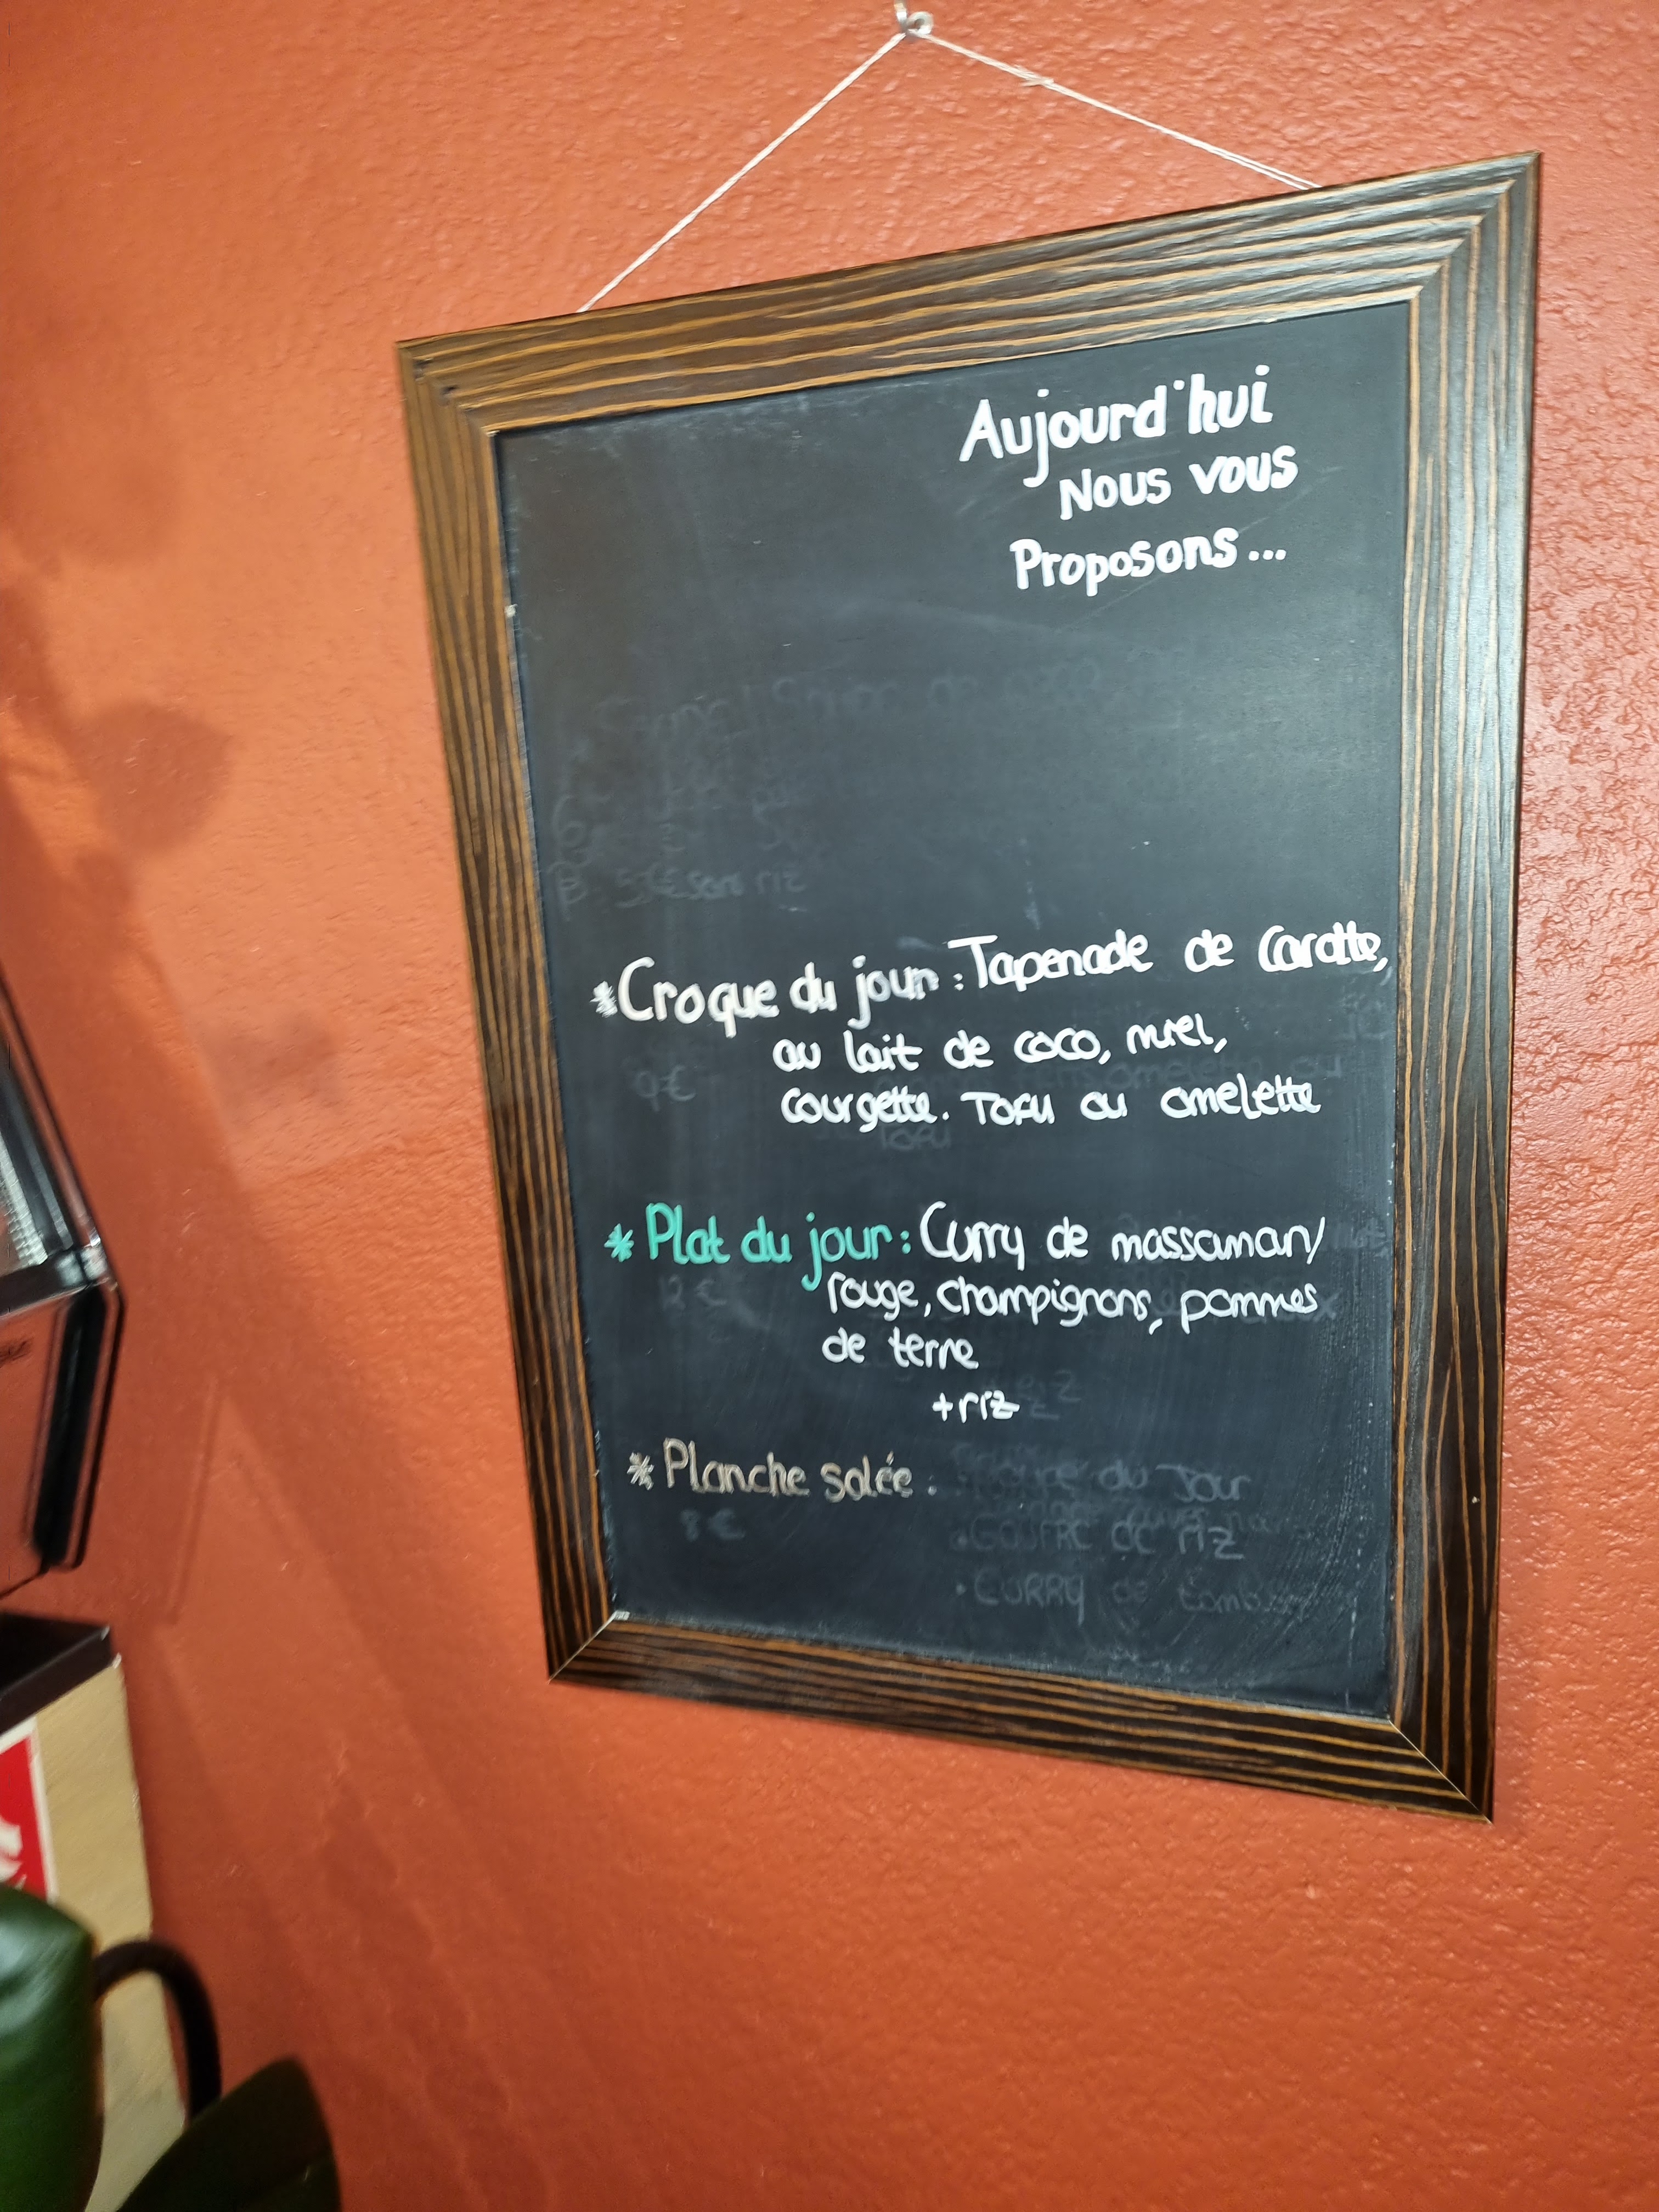 Aujourd'hui
Nous vous
Proposons...
*Croque du jour : Tapenade de Carotte,
au lait de coco, miel,
9€
courgette. Tofu ou omelette
Tofu
* Plat du jour : Curry de massaman/
12€
rouge, champignons, pommes
de terre
+riz
* Planche salée :
8€